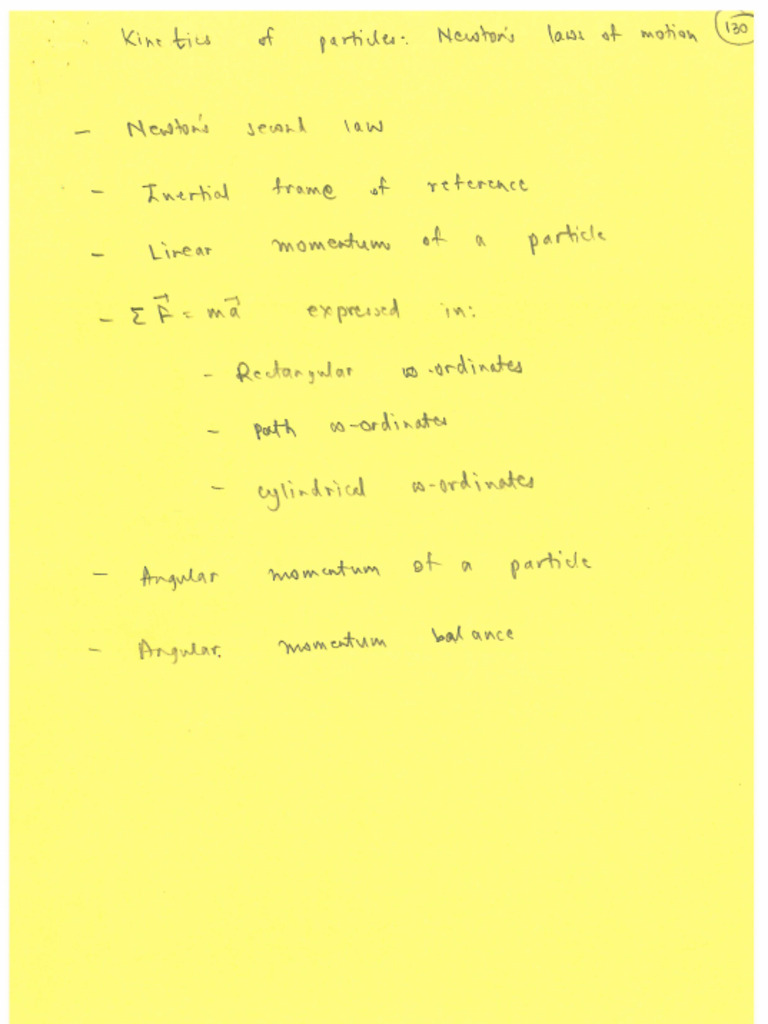 Kinetics of particles: Newton's laws of motion 130
- Newton's second law
- Inertial frame of reference
- Linear momentum of a particle
- Σ F⃗ = ma⃗ expressed in:
- Rectangular co-ordinates
- path co-ordinates
- cylindrical co-ordinates
- Angular momentum of a particle
- Angular momentum balance